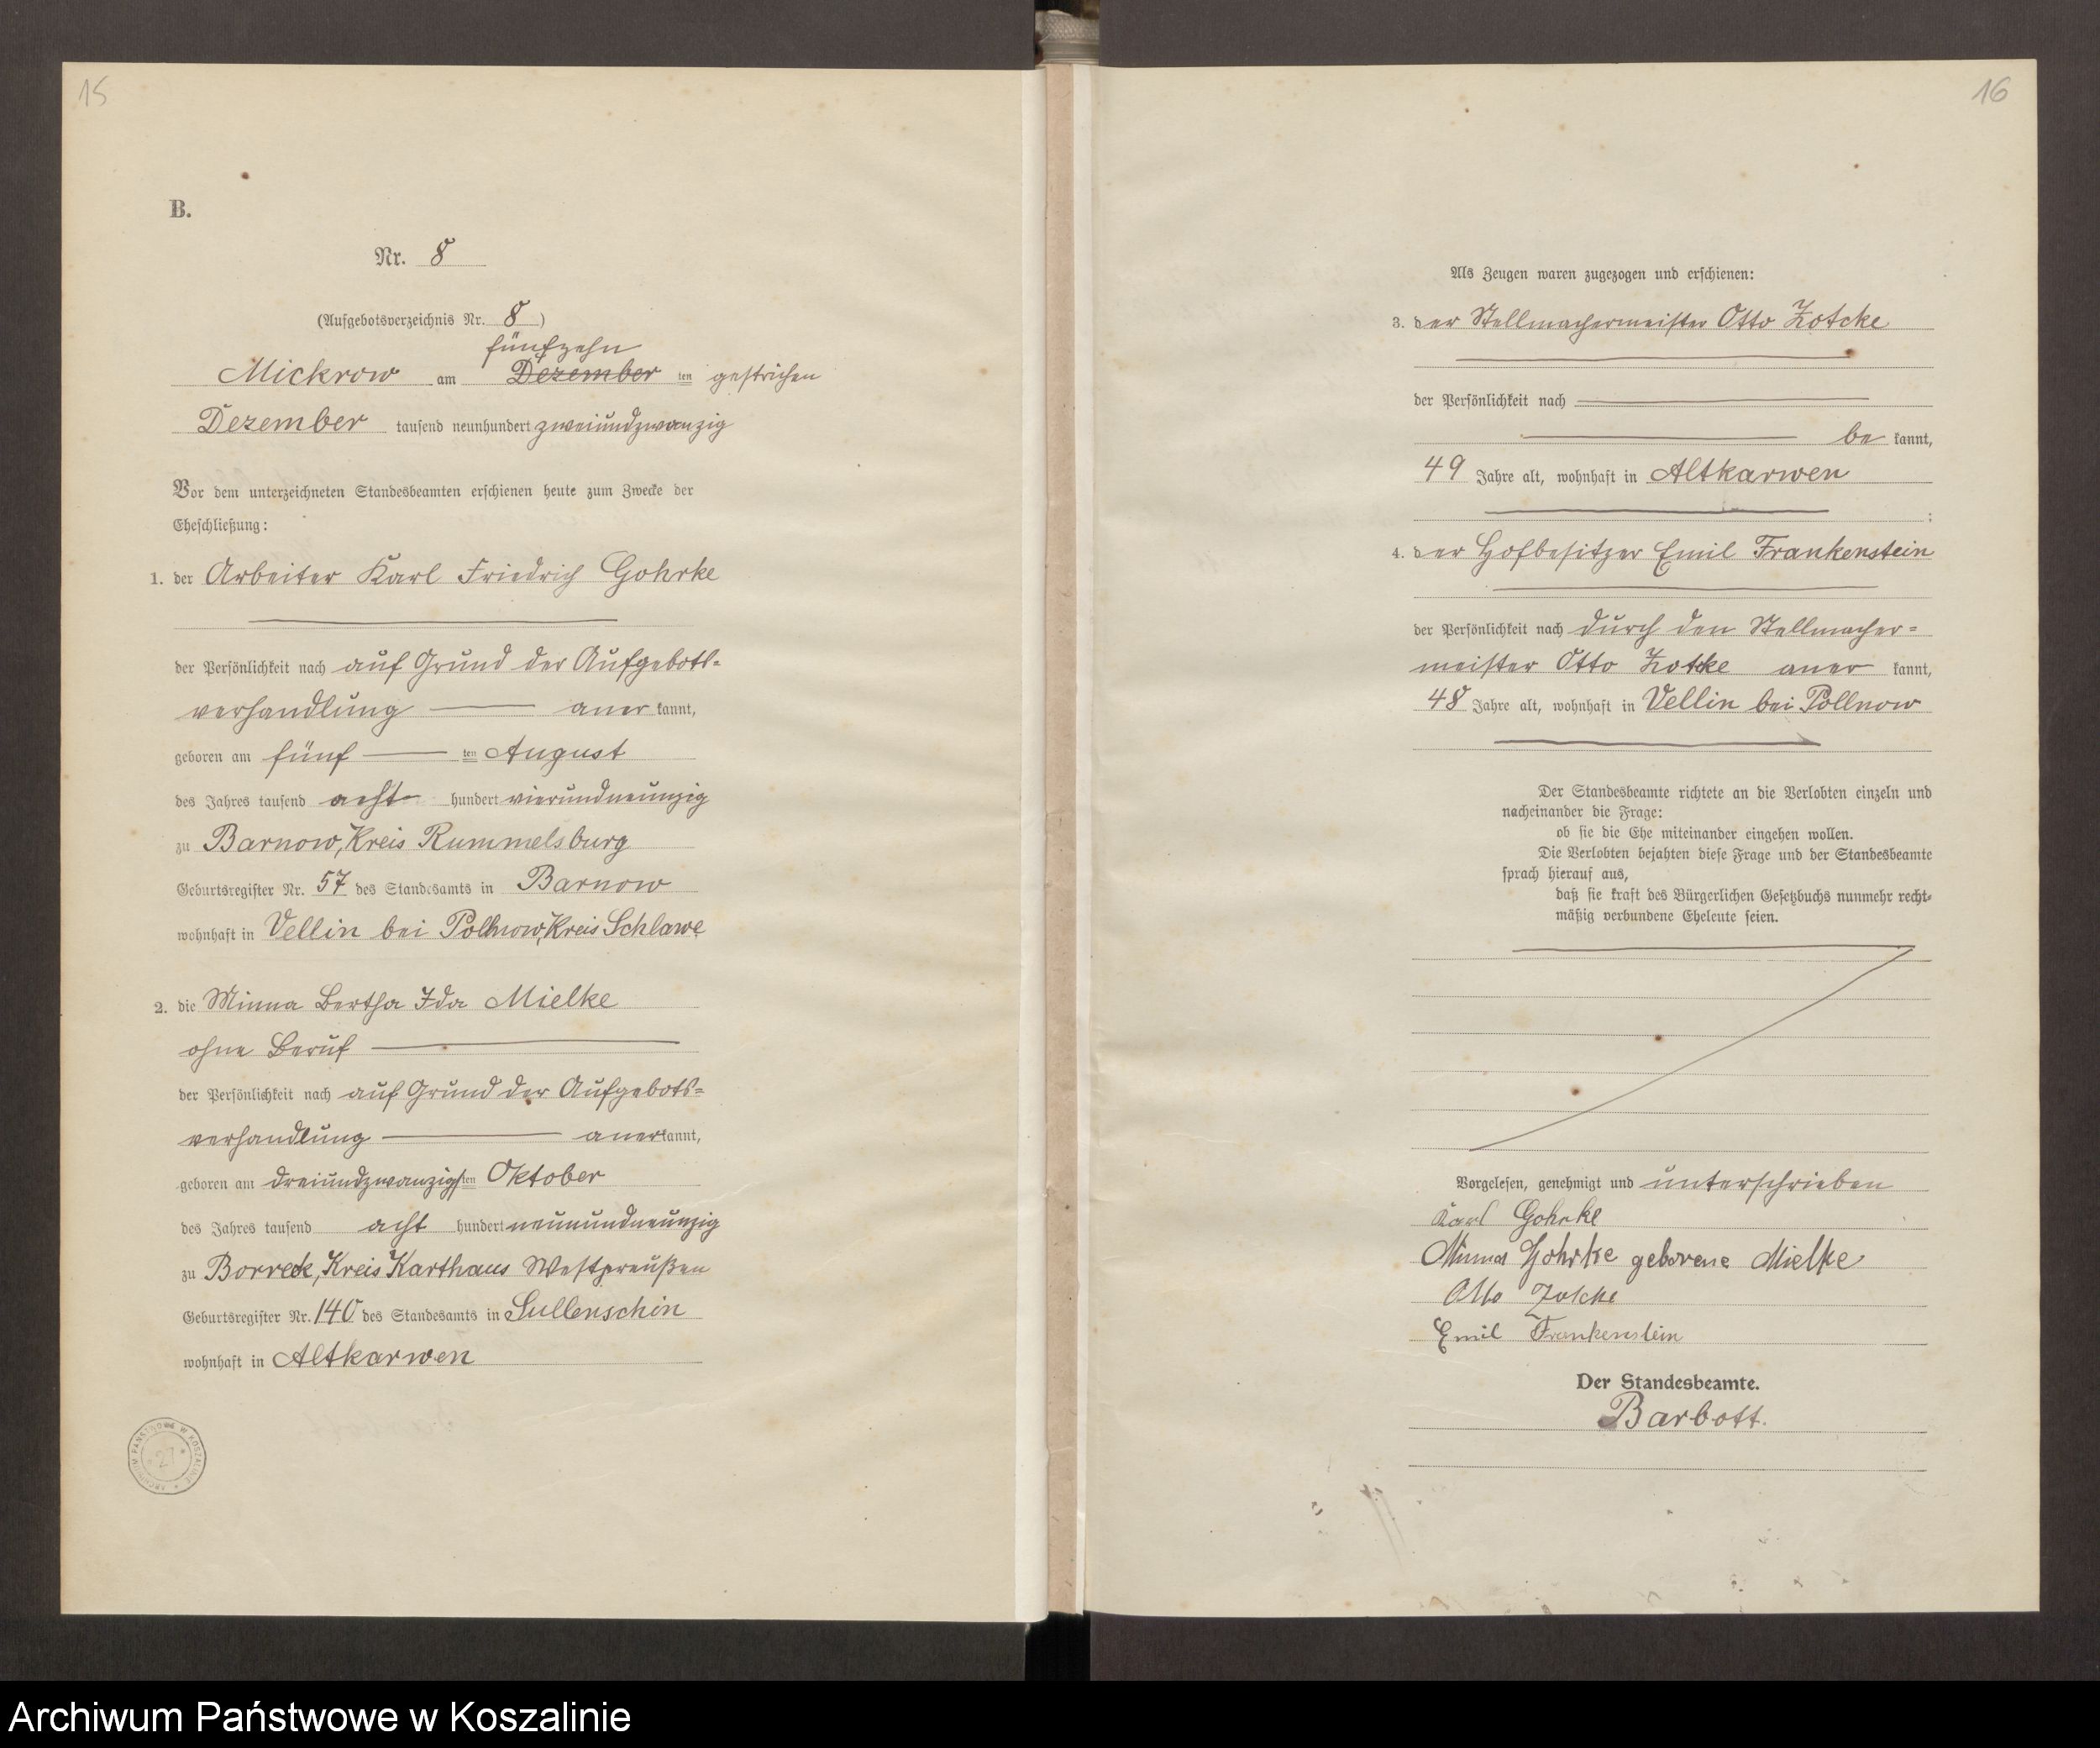 15
B.
Nr. 8
(Aufgebotsverzeichnis Nr. 8)
fünfzehn
Mickrow am Dezember ten gestrichen
Dezember tausend neunhundert zweiundzwanzig
Vor dem unterzeichneten Standesbeamten erschienen heute zum Zwecke der
Eheschließung:
1. der Arbeiter Karl Friedrich Gohrke
der Persönlichkeit nach auf Grund der Aufgebots=
verhandlung aner kannt,
geboren am fünf ten August
des Jahres tausend acht hundert vierundneunzig
zu Barnow, Kreis Rummelsburg
Geburtsregister Nr. 57 des Standesamts in Barnow
wohnhaft in Vellin bei Pollnow, Kreis Schlawe
2. die Minna Bertha Ida Mielke
ohne Beruf
der Persönlichkeit nach auf Grund der Aufgebots=
verhandlung anerkannt,
geboren am dreiundzwanzigsten Oktober
des Jahres tausend acht hundert neunundneunzig
zu Borreck, Kreis Karthaus Westpreußen
Geburtsregister Nr. 140 des Standesamts in Sullenschin
wohnhaft in Altkarwen
ARCHIWUM PAŃSTWOWE W KOSZALINIE
27
16
Als Zeugen waren zugezogen und erschienen:
3. der Stellmachermeister Otto Zotcke
der Persönlichkeit nach
be kannt,
49 Jahre alt, wohnhaft in Altkarwen
;
4. der Hofbesitzer Emil Frankenstein
der Persönlichkeit nach durch den Stellmacher=
meister Otto Zotcke aner kannt,
48 Jahre alt, wohnhaft in Vellin bei Pollnow
Der Standesbeamte richtete an die Verlobten einzeln und
nacheinander die Frage:
ob sie die Ehe miteinander eingehen wollen.
Die Verlobten bejahten diese Frage und der Standesbeamte
sprach hierauf aus,
daß sie kraft des Bürgerlichen Gesetzbuchs nunmehr recht=
mäßig verbundene Eheleute seien.
Vorgelesen, genehmigt und unterschrieben
Karl Gohrke
Minna Gohrke geborene Mielke
Otto Zotcke
Emil Frankenstein
Der Standesbeamte.
Barbott.
Archiwum Państwowe w Koszalinie